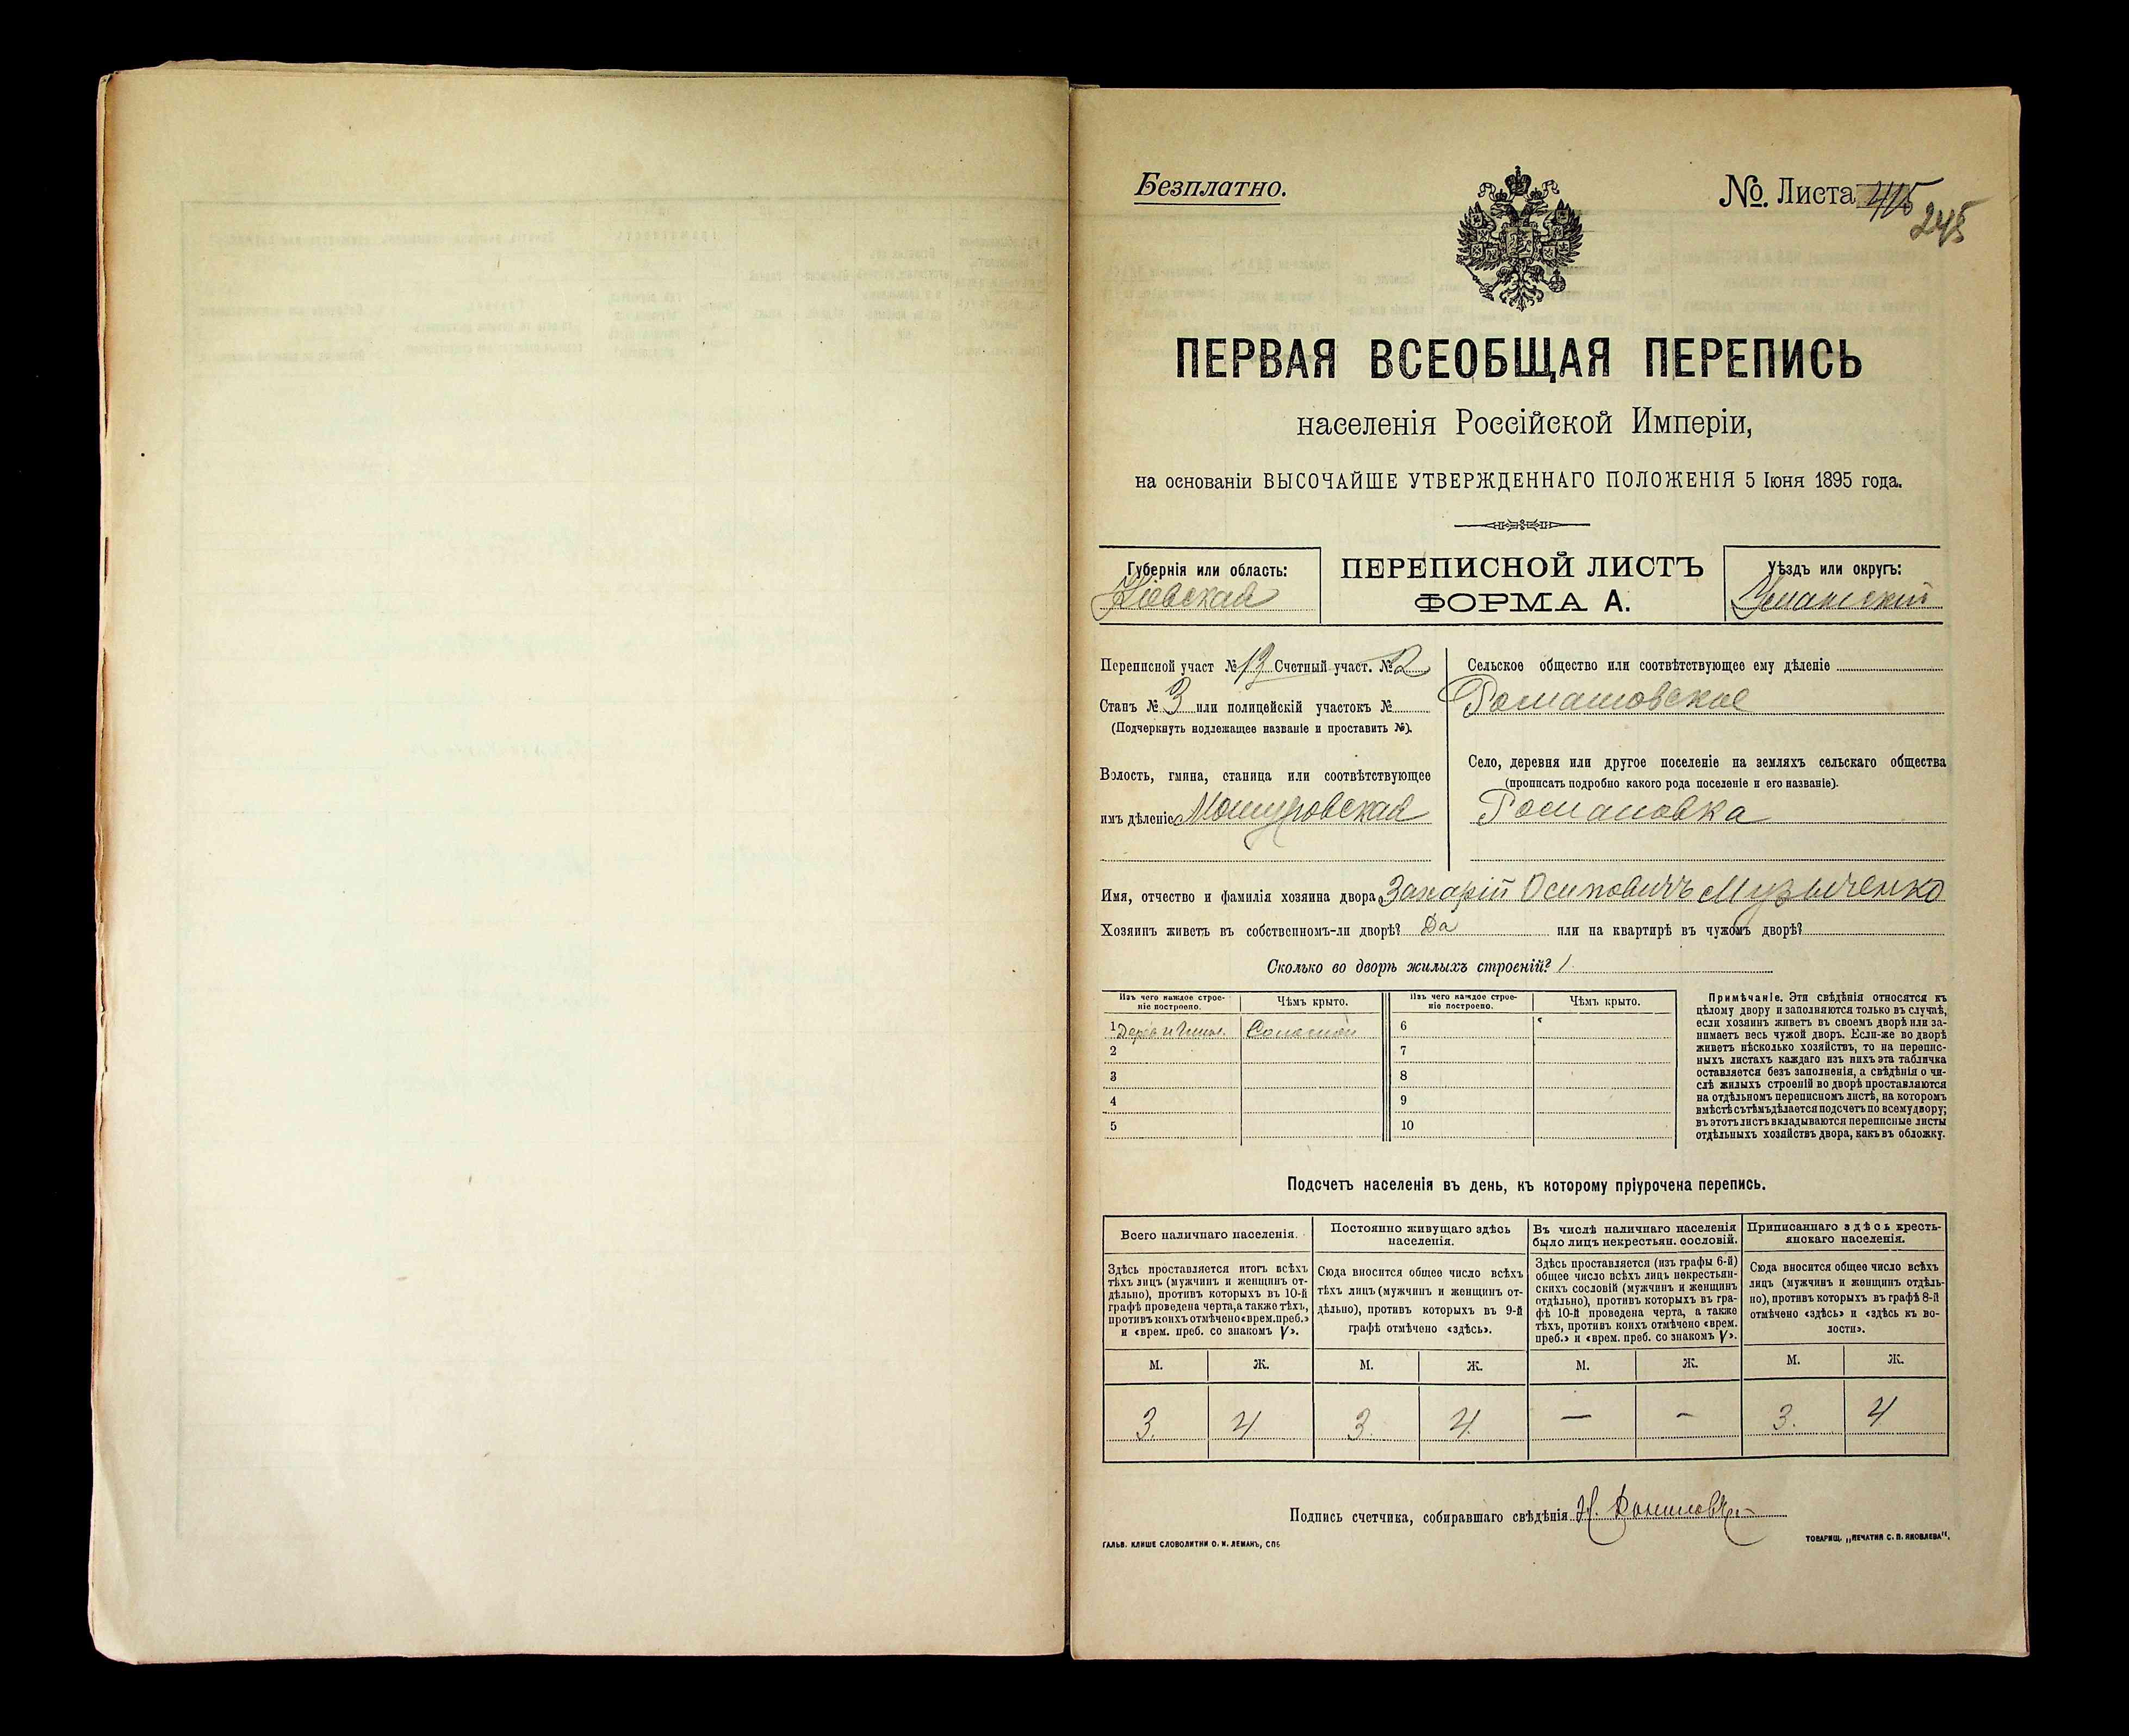 Безплатно.
№. Листа 245
ПЕРВАЯ ВСЕОБЩАЯ ПЕРЕПИСЬ
населенія Россійской Имперіи,
на основаніи ВЫСОЧАЙШЕ УТВЕРЖДЕННАГО ПОЛОЖЕНІЯ 5 Іюня 1895 года.
Губернія или область:
Кіевская
ПЕРЕПИСНОЙ ЛИСТЪ
ФОРМА А.
Уѣздъ или округъ:
Уманскій
Переписной участ № 13 Счетный участ. № 2
Станъ № 3 или полицейскій участокъ №
(Подчеркнуть подлежащее названіе и проставить №).
Волость, гмина, станица или соотвѣтствующее
имъ дѣленіе Мошуровская
Сельское общество или соотвѣтствующее ему дѣленіе
Романовское
Село, деревня или другое поселеніе на земляхъ сельскаго общества
(прописать подробно какого рода поселеніе и его названіе).
Романовка
Имя, отчество и фамилія хозяина двора Захарій Осиповичъ Музыченко
Хозяинъ живетъ въ собственномъ-ли дворѣ? Да или на квартирѣ въ чужомъ дворѣ?
Сколько во дворѣ жилыхъ строеній? 1
Изъ чего каждое строе-
ніе построено.
Чѣмъ крыто.
Изъ чего каждое строе-
ніе построено.
Чѣмъ крыто.
1 Дерев и Глин. Соломой 6
2 7
3 8
4 9
5 10
Примѣчаніе. Эти свѣдѣнія относятся къ
цѣлому двору и заполняются только въ случаѣ,
если хозяинъ живетъ въ своемъ дворѣ или за-
нимаетъ весь чужой дворъ. Если-же во дворѣ
живетъ нѣсколько хозяйствъ, то на перепис-
ныхъ листахъ каждаго изъ нихъ эта табличка
оставляется безъ заполненія, а свѣдѣнія о чи-
слѣ жилыхъ строеній во дворѣ проставляются
на отдѣльномъ переписномъ листѣ, на которомъ
вмѣстѣ съ тѣмъ дѣлается подсчетъ по всему двору;
въ этотъ листъ вкладываются переписные листы
отдѣльныхъ хозяйствъ двора, какъ въ обложку.
Подсчетъ населенія въ день, къ которому пріурочена перепись.
Всего наличнаго населенія.
Здѣсь проставляется итогъ всѣхъ
тѣхъ лицъ (мужчинъ и женщинъ от-
дѣльно), противъ которыхъ въ 10-й
графѣ проведена черта, а также тѣхъ,
противъ коихъ отмѣчено «врем. преб.»
и «врем. преб. со знакомъ V».
Постоянно живущаго здѣсь
населенія.
Сюда вносится общее число всѣхъ
тѣхъ лицъ (мужчинъ и женщинъ от-
дѣльно), противъ которыхъ въ 9-й
графѣ отмѣчено «здѣсь».
Въ числѣ наличнаго населенія
было лицъ некрестьян. сословій.
Здѣсь проставляется (изъ графы 6-й)
общее число всѣхъ лицъ некрестьян-
скихъ сословій (мужчинъ и женщинъ
отдѣльно), противъ которыхъ въ гра-
фѣ 10-й проведена черта, а также
тѣхъ, противъ коихъ отмѣчено «врем.
преб.» и «врем. преб. со знакомъ V».
Приписаннаго здѣсь кресть-
янскаго населенія.
Сюда вносится общее число всѣхъ
лицъ (мужчинъ и женщинъ отдѣль-
но), противъ которыхъ въ графѣ 8-й
отмѣчено «здѣсь» и «здѣсь къ во-
лости».
М. Ж. М. Ж. М. Ж. М. Ж.
3. 4 3. 4. — - 3. 4
Подпись счетчика, собиравшаго свѣдѣнія Н.
ГАЛЬВ. КЛИШЕ СЛОВОЛИТНИ О. И. ЛЕМАНЪ, СПБ
ТОВАРИЩ. „ПЕЧАТНЯ С. П. ЯКОВЛЕВА".